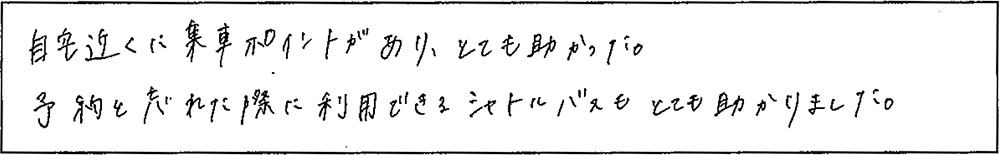 自宅近くに乗車ポイントがあり、とても助かった。
予約を忘れた際に利用できるシャトルバスもとても助かりました。